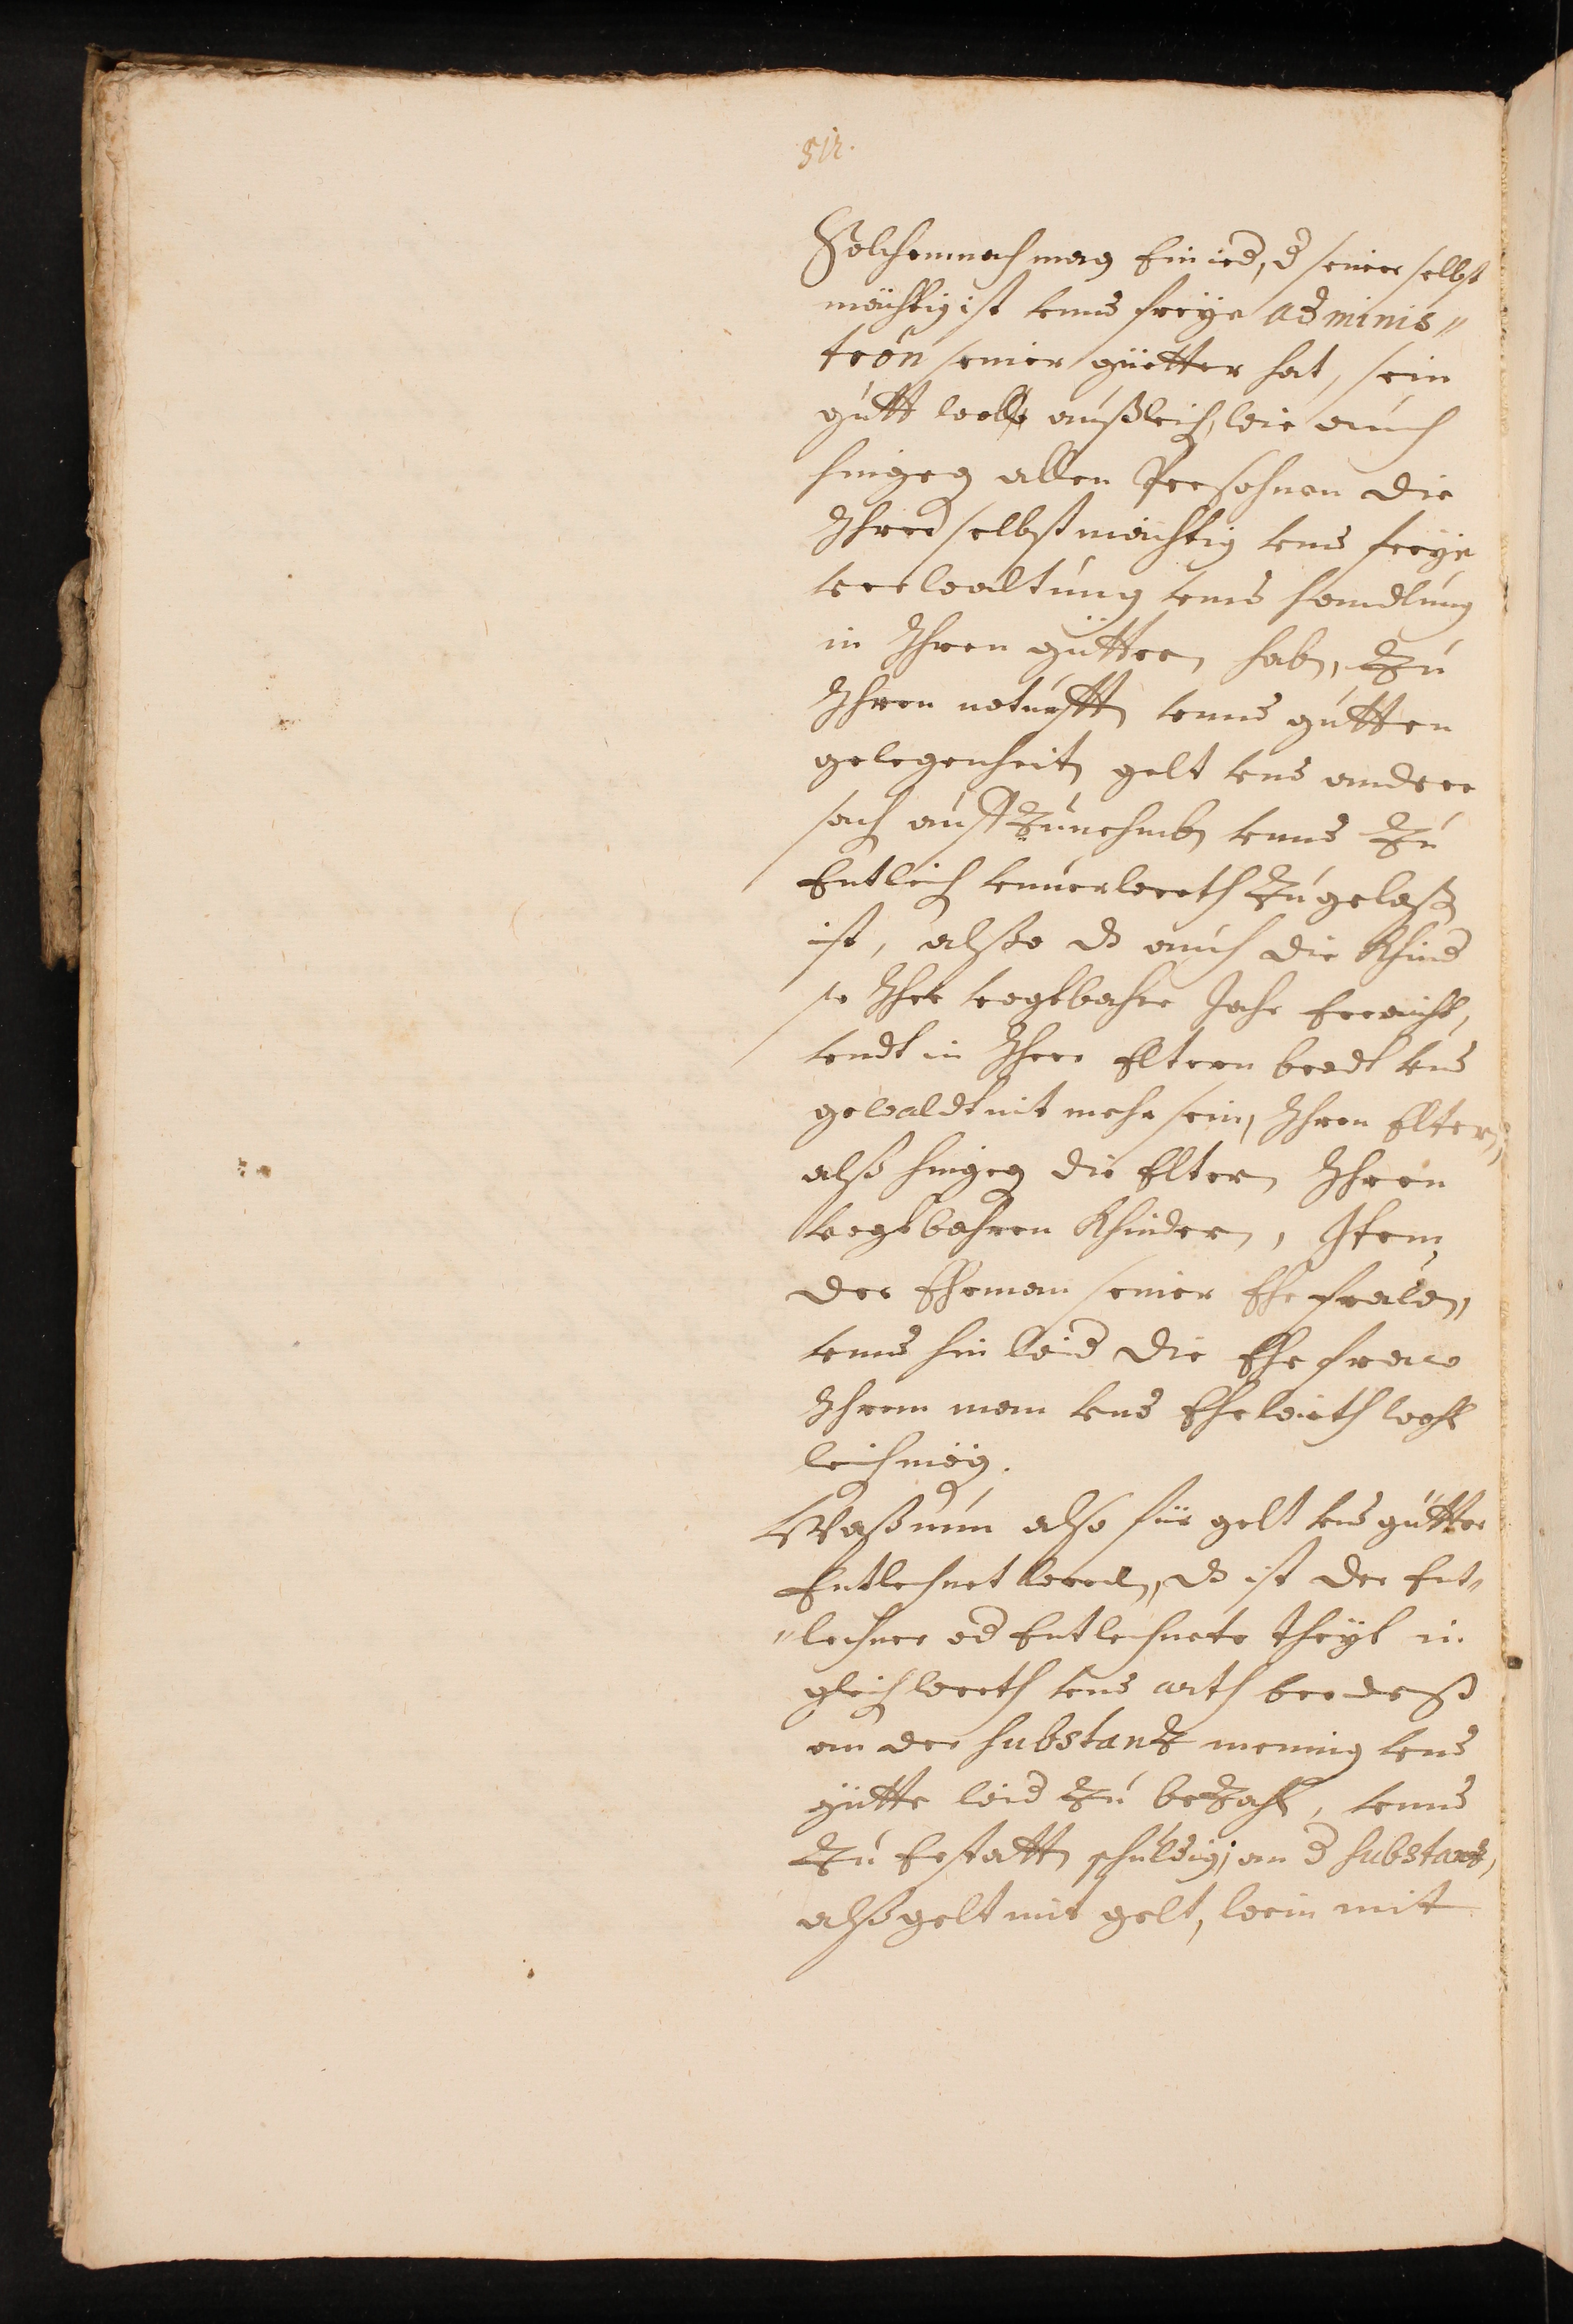 512.
Solchemnach mag Ein ied, d seiner selbst
mächtig ist vnnd freÿe Adminis〃
trön seiner güetter hat, sein
gutt woll außleich, wie auch
hingeg allen Persohnen die
Ihred selbst mächtig vnd freÿe
verwaltung vnnd handlung
in Ihren güttern hab, zu
Ihren noturfft vnnd gutten
gelegenheit gelt vnd andere
sach auffzunehmb vnnd zu
Entleich vnuerwerth zugelaß
ist, alßo ds auch die Khind
so Ihre vogtbahre Jahr Erraicht,
vndt in Ihrer Eltern brodt vnd
gewaldt nit mehr sein, Ihren Eltern,
alß hingeg die Eltern Ihren
vogtbahren Khindern, Item
der Eheman seiner Ehefrawen,
vnnd hinwid die Ehefraw
Ihrem man vnd Ehewirth wohl
leich mög.
Waß nun also für gelt vnd gütter
Entlehnet werd, ds ist der Ent〃
〃lehner od Entlehnete theÿl in
gleich werth vnd arth
an der substantz mening vnd
gütte wid zu bezahl, vnnd
zu Erstatt schuldig, an d substantz,
alß gelt mit gelt, wein mit